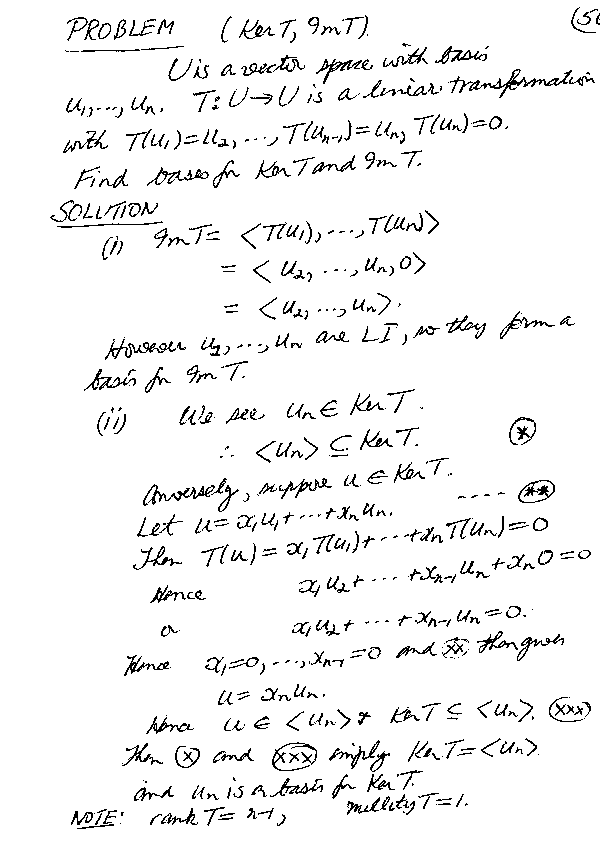 PROBLEM (Ker T, Im T). (56
U is a vector space with basis
u₁, ..., uₙ. T: U → U is a linear transformation
with T(u₁) = u₂, ..., T(uₙ₋₁) = uₙ, T(uₙ) = 0.
Find bases for Ker T and Im T.
SOLUTION
(i) Im T = <T(u₁), ..., T(uₙ)>
= <u₂, ..., uₙ, 0>
= <u₂, ..., uₙ>.
However u₂, ..., uₙ are LI, so they form a
basis for Im T.
(ii) We see uₙ ∈ Ker T.
∴ <uₙ> ⊆ Ker T. (*)
Conversely, suppose u ∈ Ker T.
Let u = x₁u₁ + ... + xₙuₙ. ---- (**)
Then T(u) = x₁T(u₁) + ... + xₙT(uₙ) = 0
Hence x₁u₂ + ... + xₙ₋₁uₙ + xₙ0 = 0
or x₁u₂ + ... + xₙ₋₁uₙ = 0.
Hence x₁ = 0, ..., xₙ₋₁ = 0 and (xx) then gives
u = xₙuₙ.
Hence u ∈ <uₙ> & Ker T ⊆ <uₙ>. (xxx)
Then (x) and (xxx) imply Ker T = <uₙ>.
and uₙ is a basis for Ker T.
NOTE: rank T = n-1, nullity T = 1.